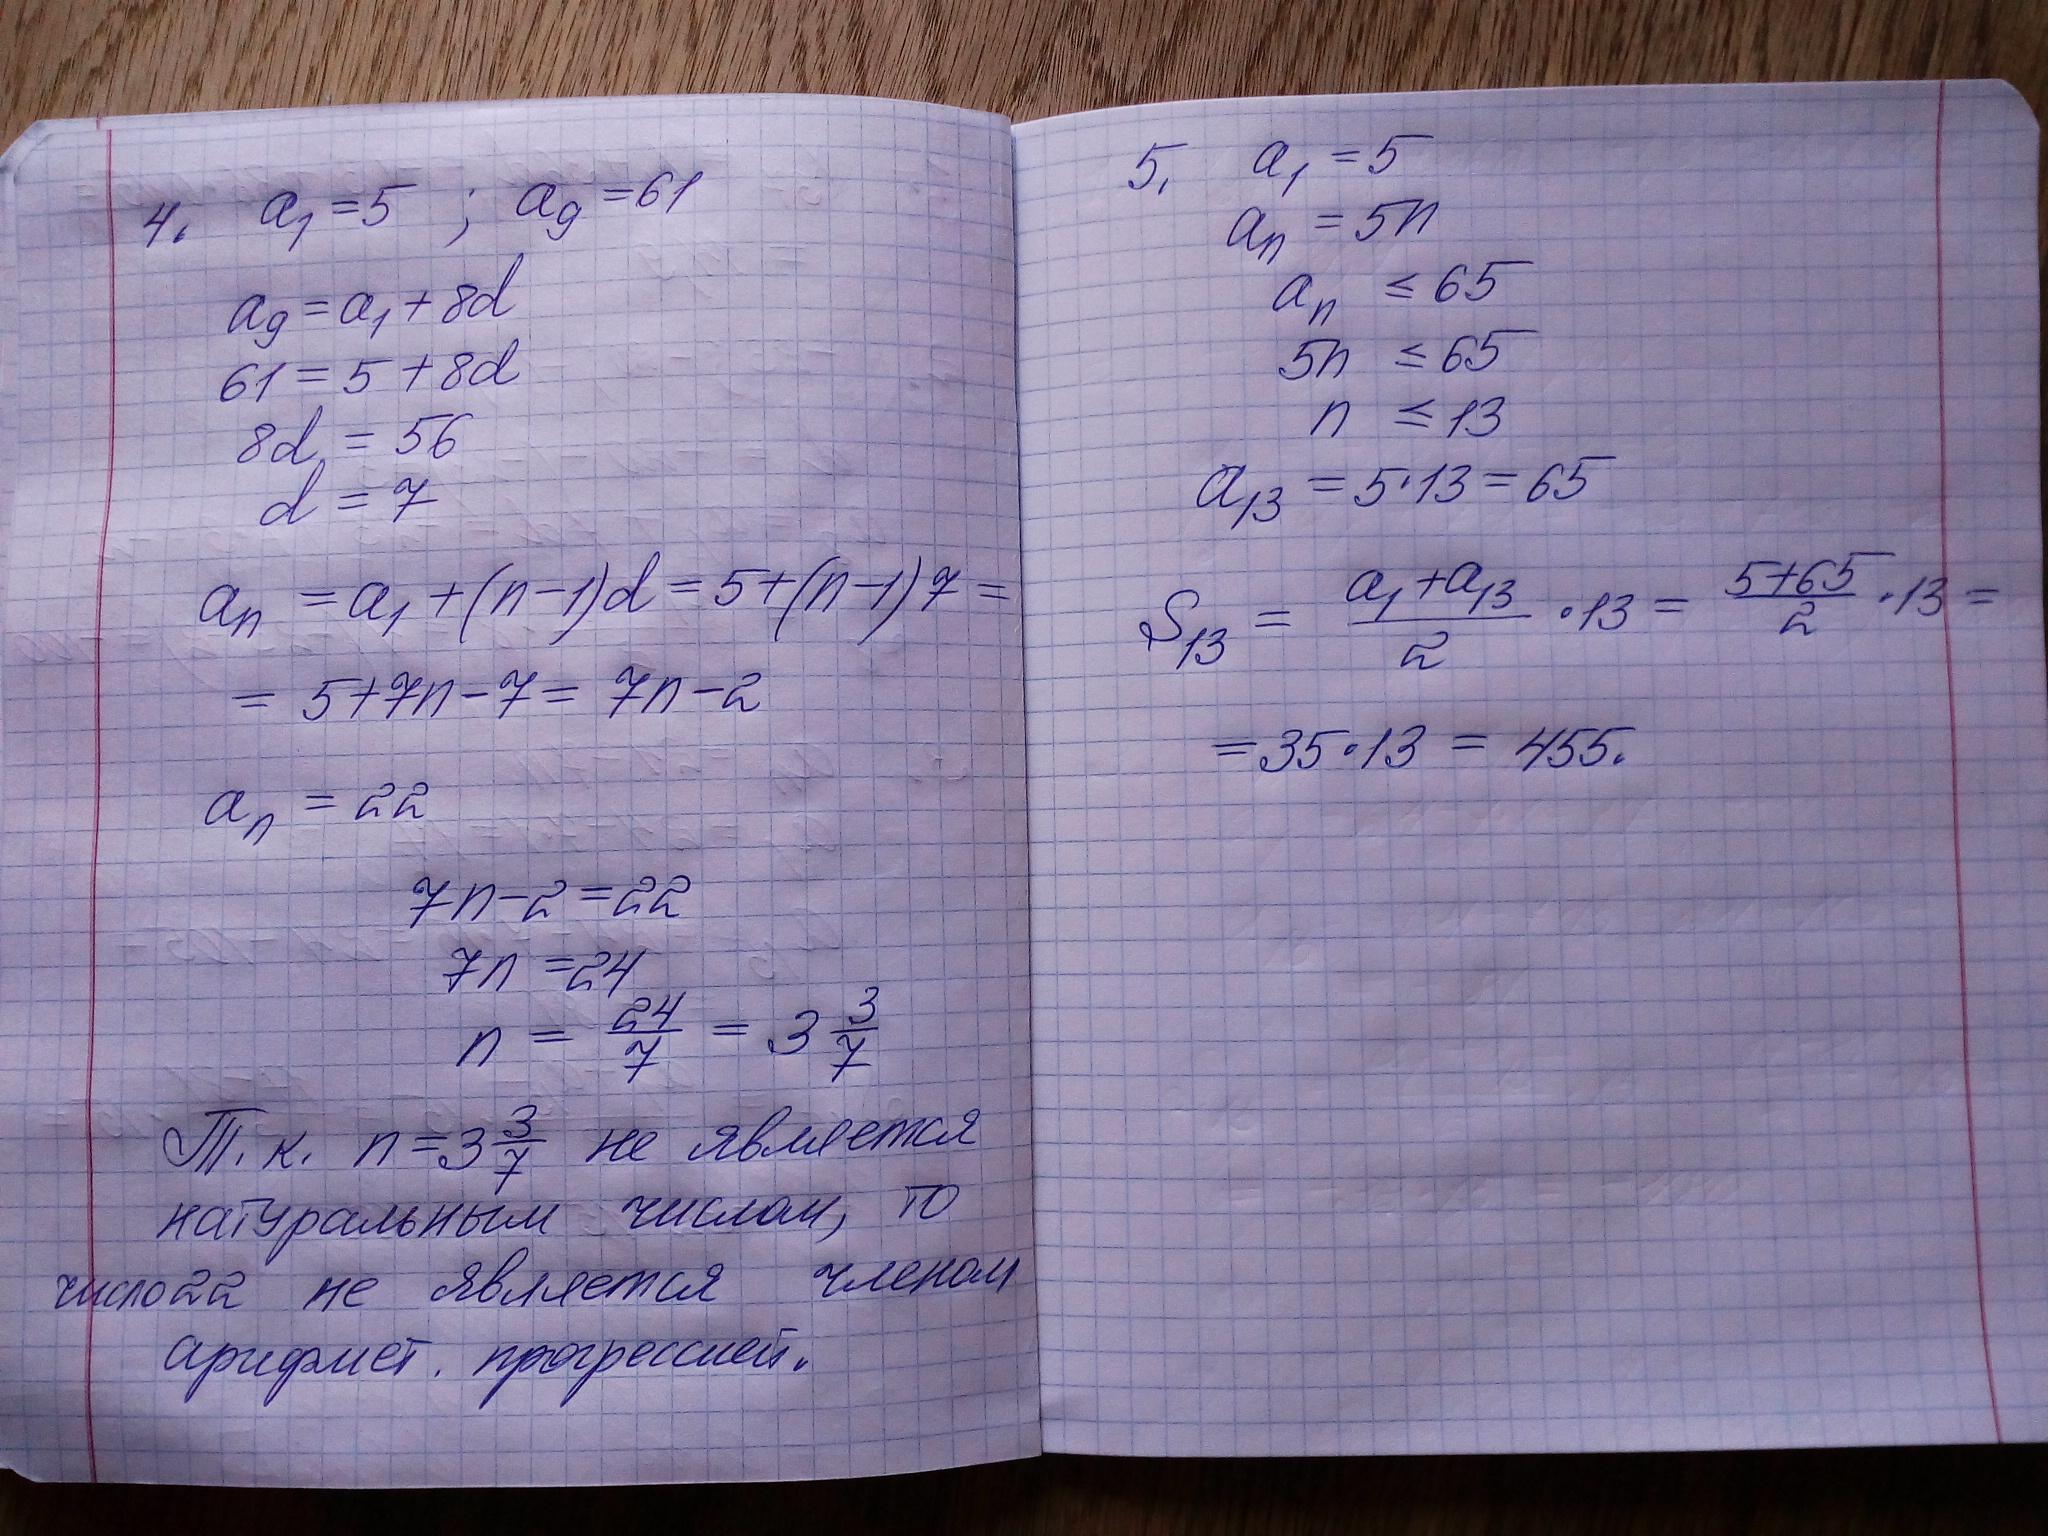 4. a₁ = 5 ; a₉ = 61
a₉ = a₁ + 8d
61 = 5 + 8d
8d = 56
d = 7
aₙ = a₁ + (n-1)d = 5 + (n-1)7 =
= 5 + 7n - 7 = 7n - 2
aₙ = 22
7n - 2 = 22
7n = 24
n = 24/7 = 3 3/7
Т.к. n = 3 3/7 не является
натуральным числом, то
число 22 не является членом
арифмет. прогрессией.
5. a₁ = 5
aₙ = 5n
aₙ ≤ 65
5n ≤ 65
n ≤ 13
a₁₃ = 5·13 = 65
S₁₃ = (a₁ + a₁₃)/2 · 13 = (5+65)/2 · 13 =
= 35·13 = 455.